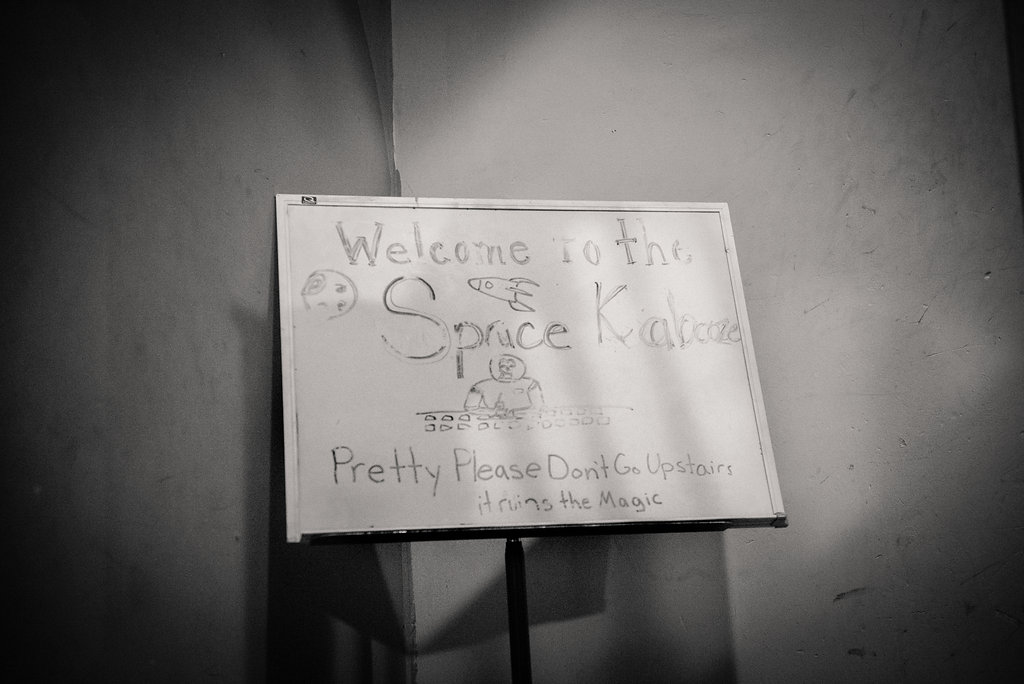 Welcome To the
Spruce Kabooze
Pretty Please Don't Go Upstairs
it ruins the Magic